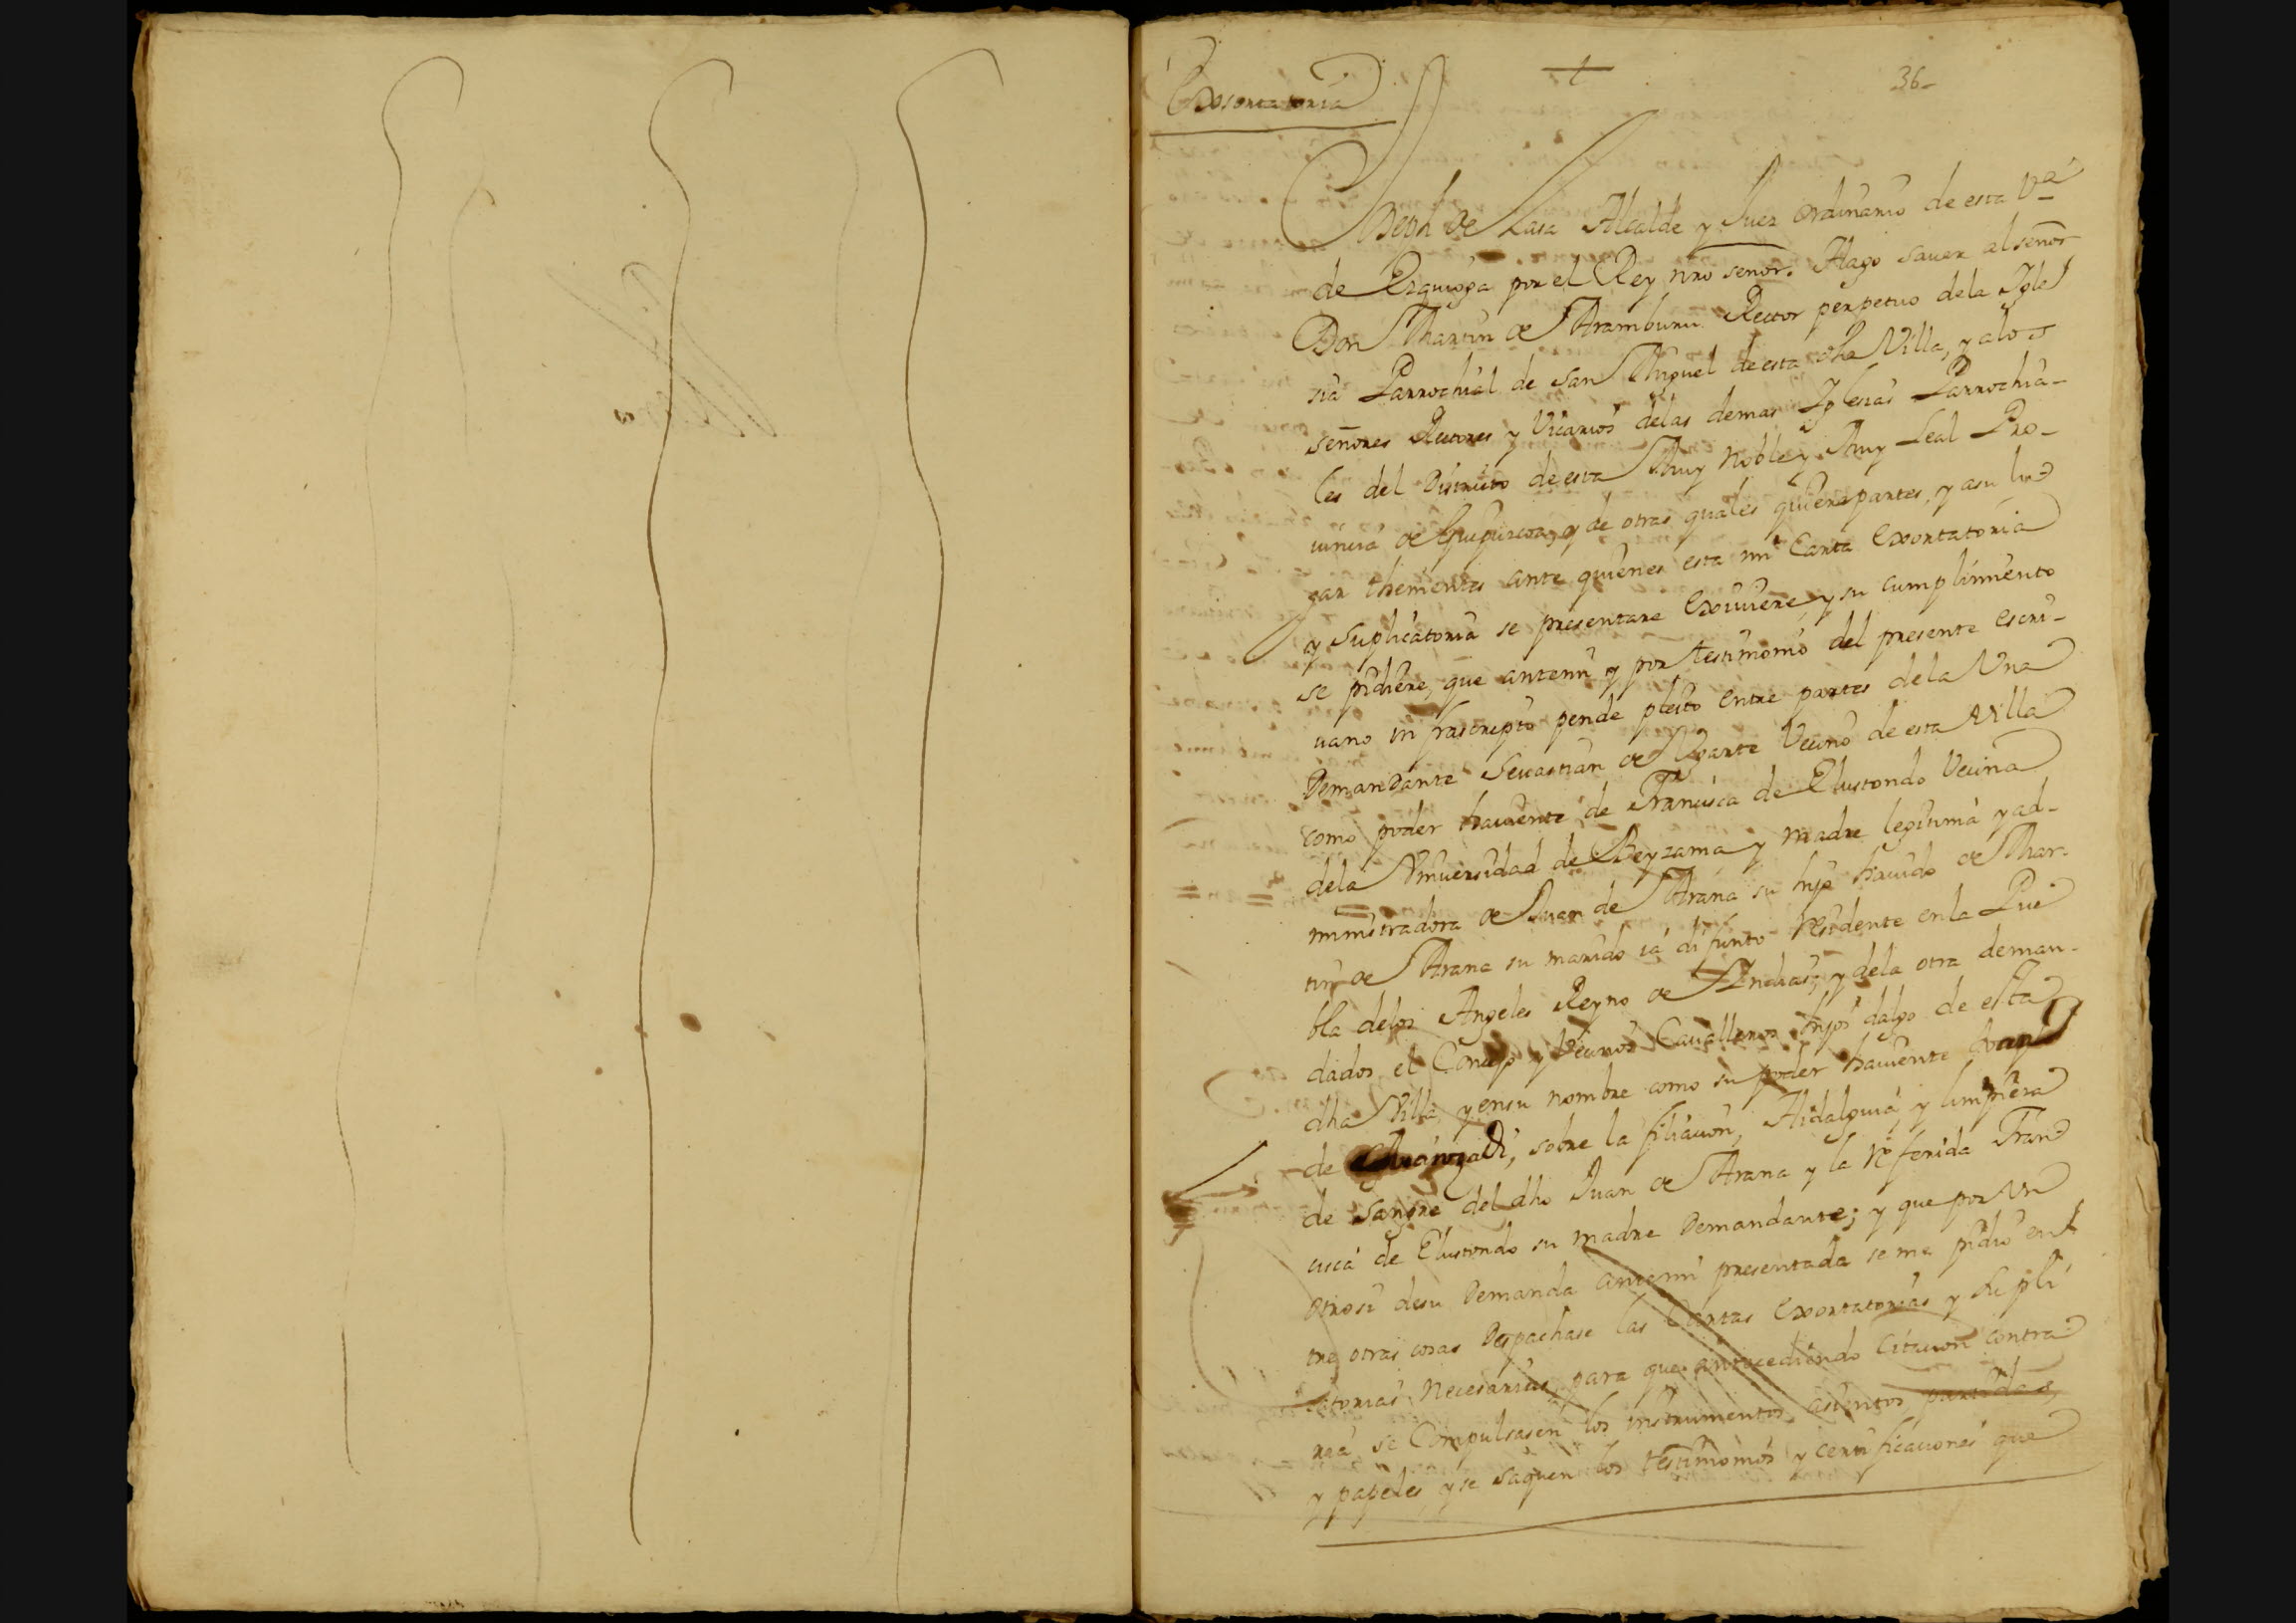 Exsortatoria
36
Joseph de Lasa Alcalde y Juez ordinario de esta Vª
de Ezquioga por el Rey nro señor. Hago saver al señor
Don Martin de Aramburu Rector perpetuo dela Igle
sia Parrochial de San Miguel de esta dha Villa, y alos
señores Rectores y Vicarios delas demas Iglesias Parrochia-
les del Distrito de esta Muy Noble y Muy Leal Pro-
vincia de Guipuzcoa, y de otras quales quiera partes, y asu lu
gar thenientes ante quienes esta mi Carta Exortatoria
y Suplicatoria se presentare Exsiviere, y su cumplimiento
se pidiere, que antemi y por testimonio del presente escri-
vano in frascripto pende pleito entre partes dela Una
Demandante Sevastian de Ugarte Vecino de esta Villa
como poder haviente de Francisca de Elustondo Vecina
dela Universidad de Beyzama y madre legitima y ad-
ministradora de Juan de Arana su hijo havido de Mar-
tin de Arana su marido ia difunto Residente en la Pue
bla delos Angeles Reyno de Indias; y dela otra deman-
dados el Concejo y Vecinos Cavalleros hijos dalgo de esta
dha Villa, y ensu nombre como su poder haviente
de sobre la filiacion, Hidalguia, y limpieza
de Sangre del dho Juan de Arana y la Referida Fran
cisca de Elustondo su madre Demandante; y que por Un
otrosi desu Demanda antemi presentada se me pidio en
tre otras cosas Despachase las Cartas Exortatorias y Supli
catorias Necesarias, para que antecediendo Citacion contra
ria, se Compulsasen los instrumentos, asientos, partidas,
y papeles, y se saquen los testimonios y certificaciones que